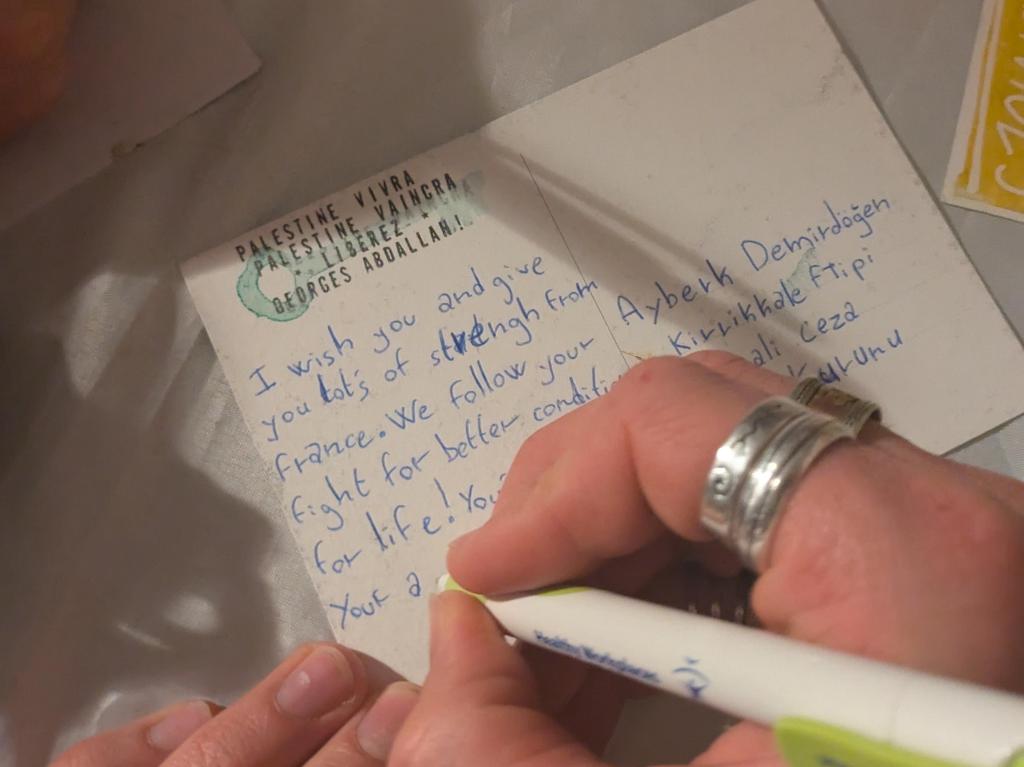 PALESTINE VIVRA
PALESTINE VAINCRA
* LIBEREZ *
GEORGES ABDALLAH!
I wish you and give
you lot's of strengh from
france. We follow your
fight for better
for life!
Your a
Ayberk Demirdöğen
Kirrikkale Ftipi
ceza
Kurunu